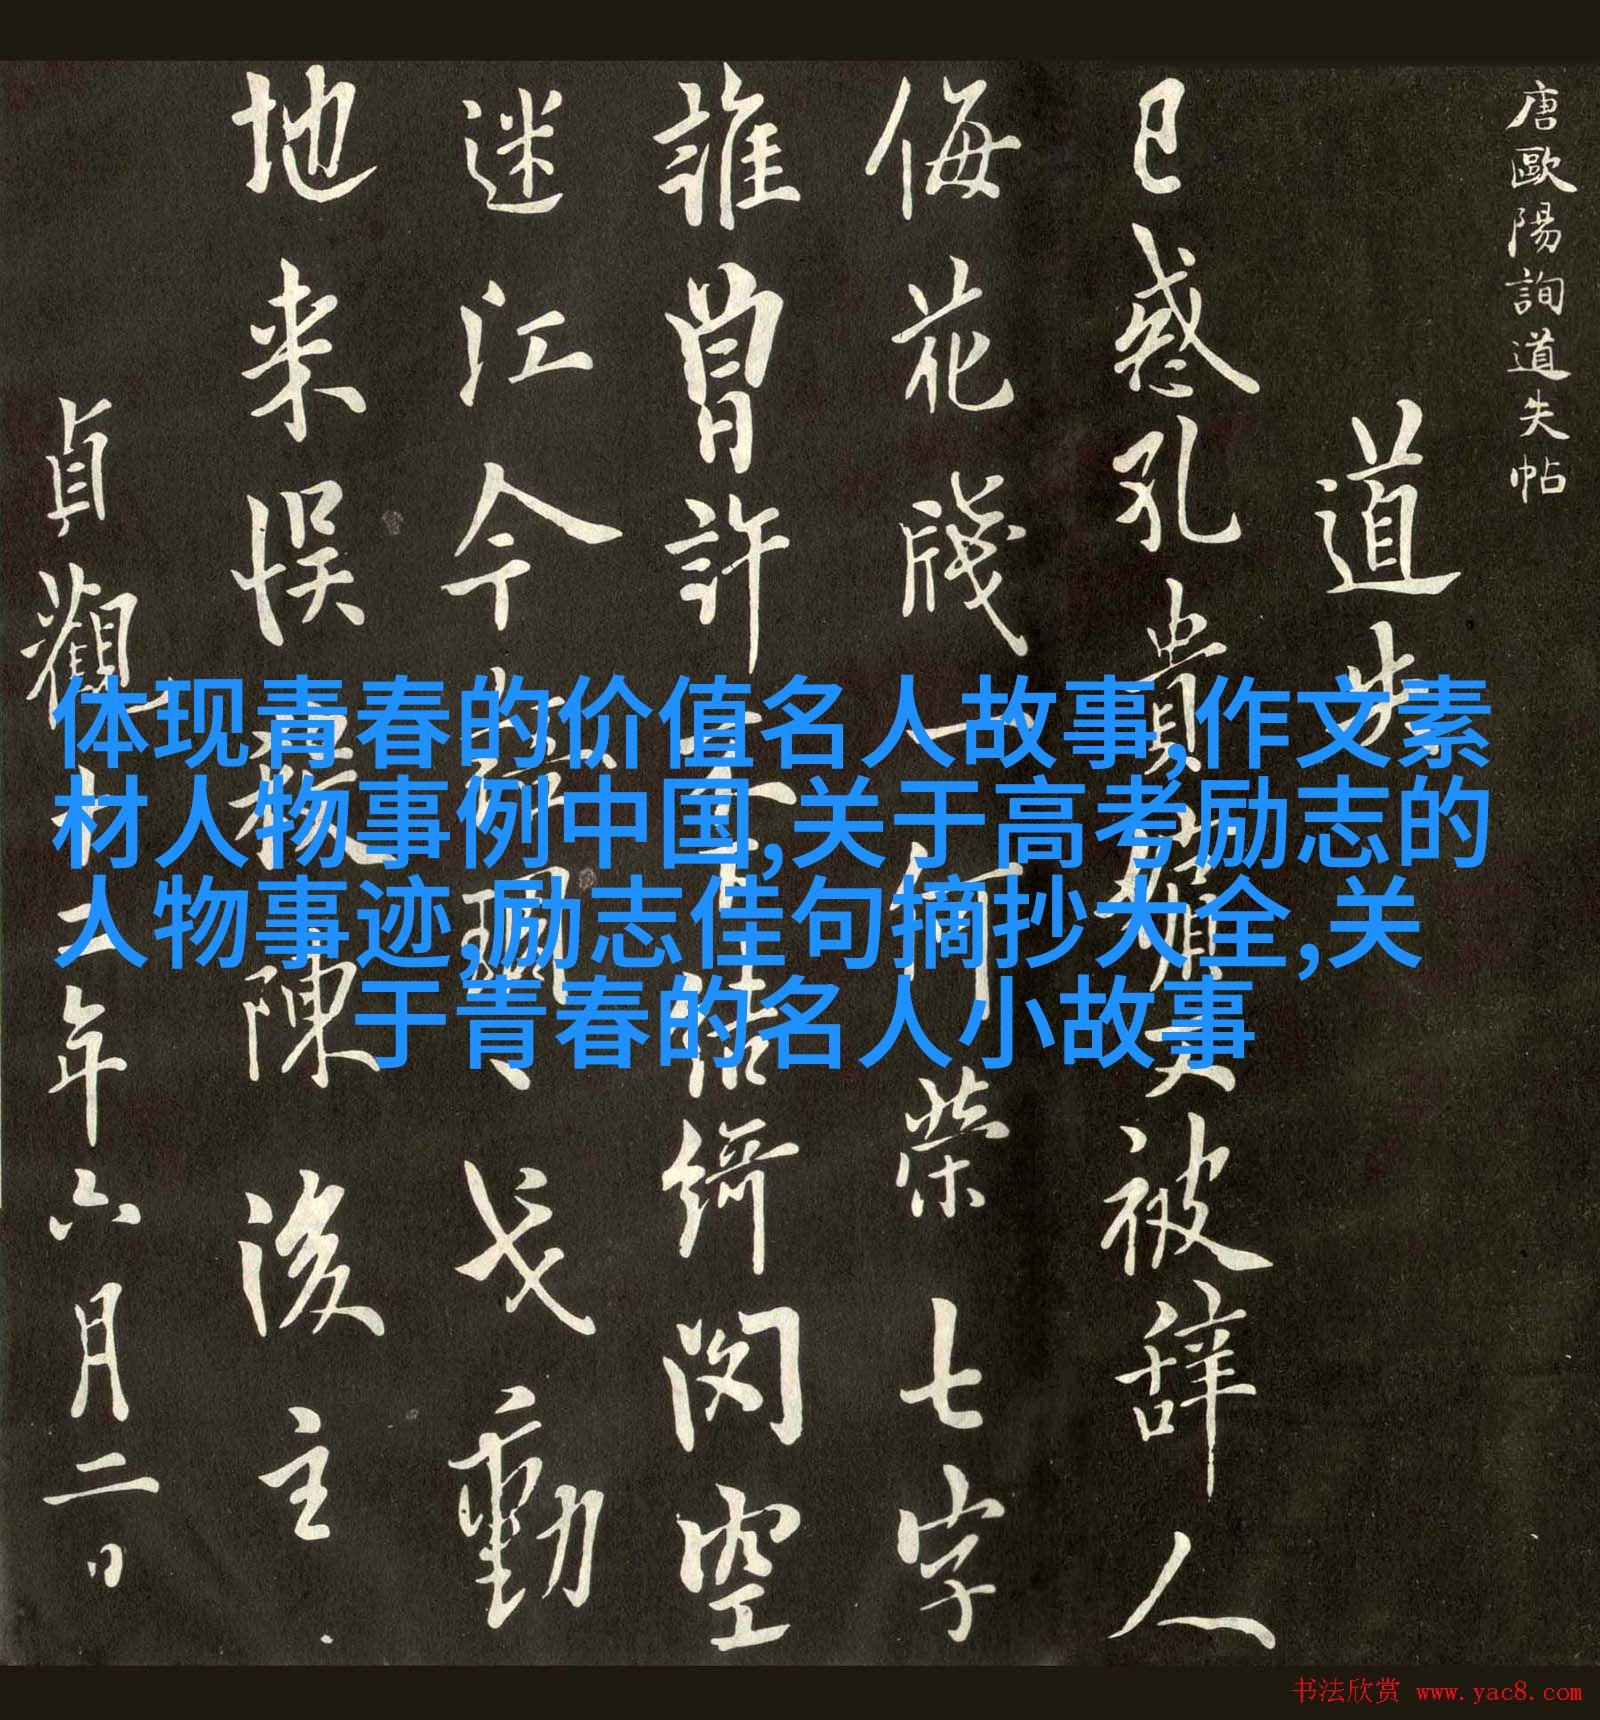 唐歐陽詢道失帖
道失
已惑孔貴嬪又被辞人
侮花牋一何榮七字
誰曾許綺閔空
迷江令戈動
地来悮殺陳後主
貞觀年六月二日
体现青春的价值名人故事,作文素
材人物事例中国,关于高考励志的
人物事迹,励志佳句摘抄大全,关
于青春的名人小故事
书法欣赏 www.yac8.com